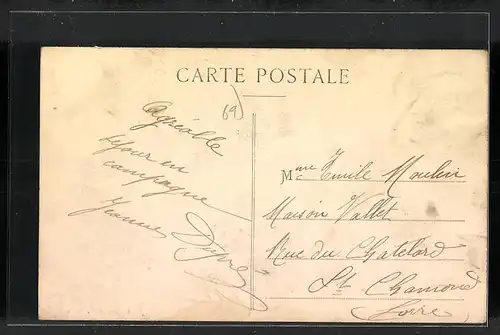 CARTE POSTALE
69)
Agréable
séjour en
campagne
Jeanne Dupré
Mme Emile Moulin
Maison Vallet
Rue du Chatelard
St Chamond
Loire